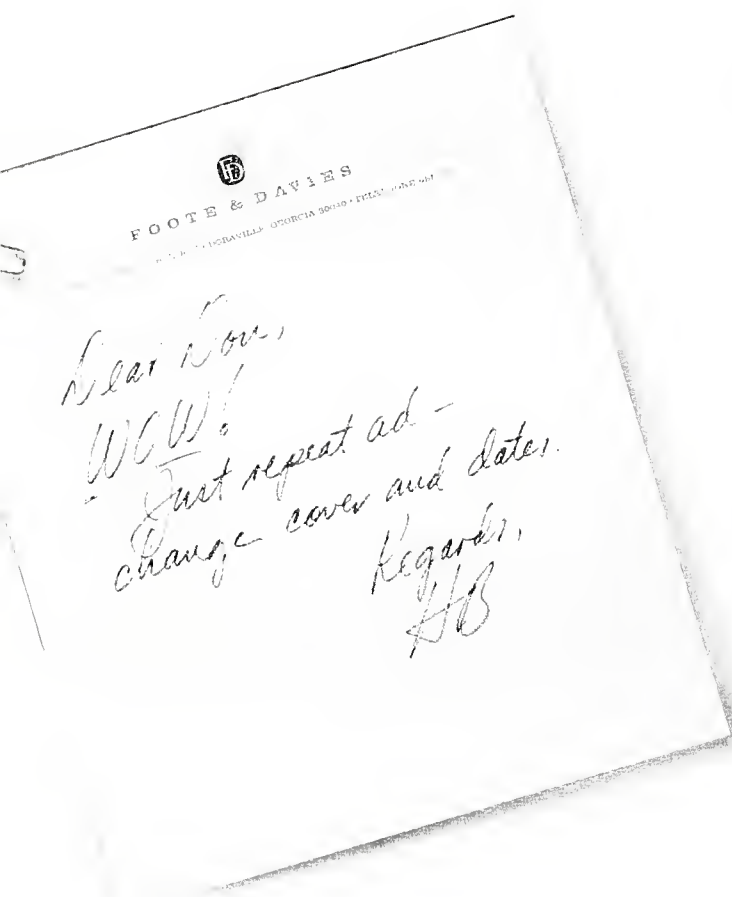 FD
FOOTE & DAVIES
DORAVILLE, GEORGIA
Dear Don,
WOW!
Just repeat ad –
change cover and dates.
Regards,
HB